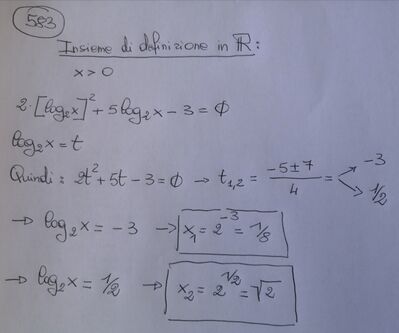 583
Insieme di definizione in ℝ:
x > 0
2·[log₂x]² + 5log₂x − 3 = 0
log₂x = t
Quindi: 2t² + 5t − 3 = 0 → t₁,₂ = (−5 ± 7)/4 = → −3 → 1/2
→ log₂x = −3 → x₁ = 2⁻³ = 1/8
→ log₂x = 1/2 → x₂ = 2^(1/2) = √2